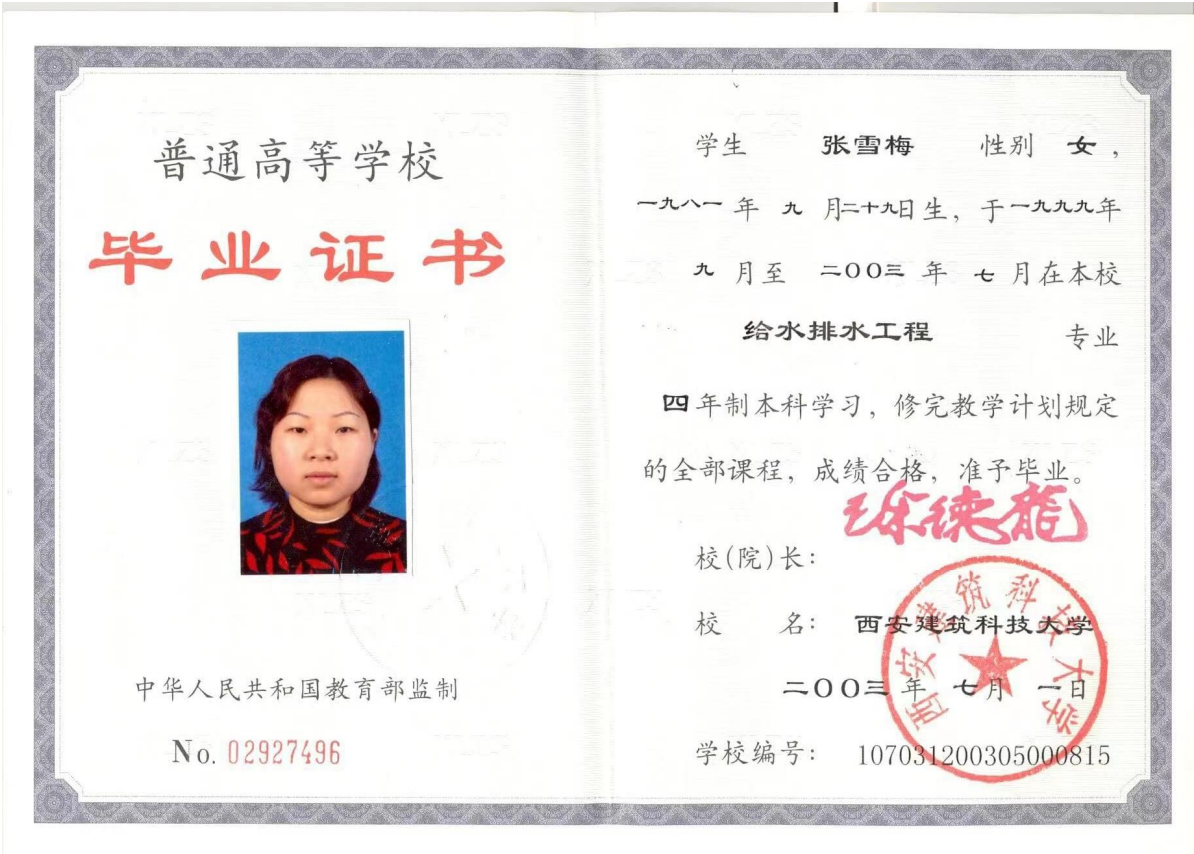 普通高等学校
毕业证书
中华人民共和国教育部监制
No. 02927496
学生 张雪梅 性别 女，
一九八一年 九 月二十九日生，于一九九九年
九 月至 二〇〇三 年 七 月在本校
给水排水工程 专业
四年制本科学习，修完教学计划规定
的全部课程，成绩合格，准予毕业。
校(院)长：
校 名： 西安建筑科技大学
二〇〇三 年 七月 一日
学校编号： 107031200305000815
西安建筑科技大学